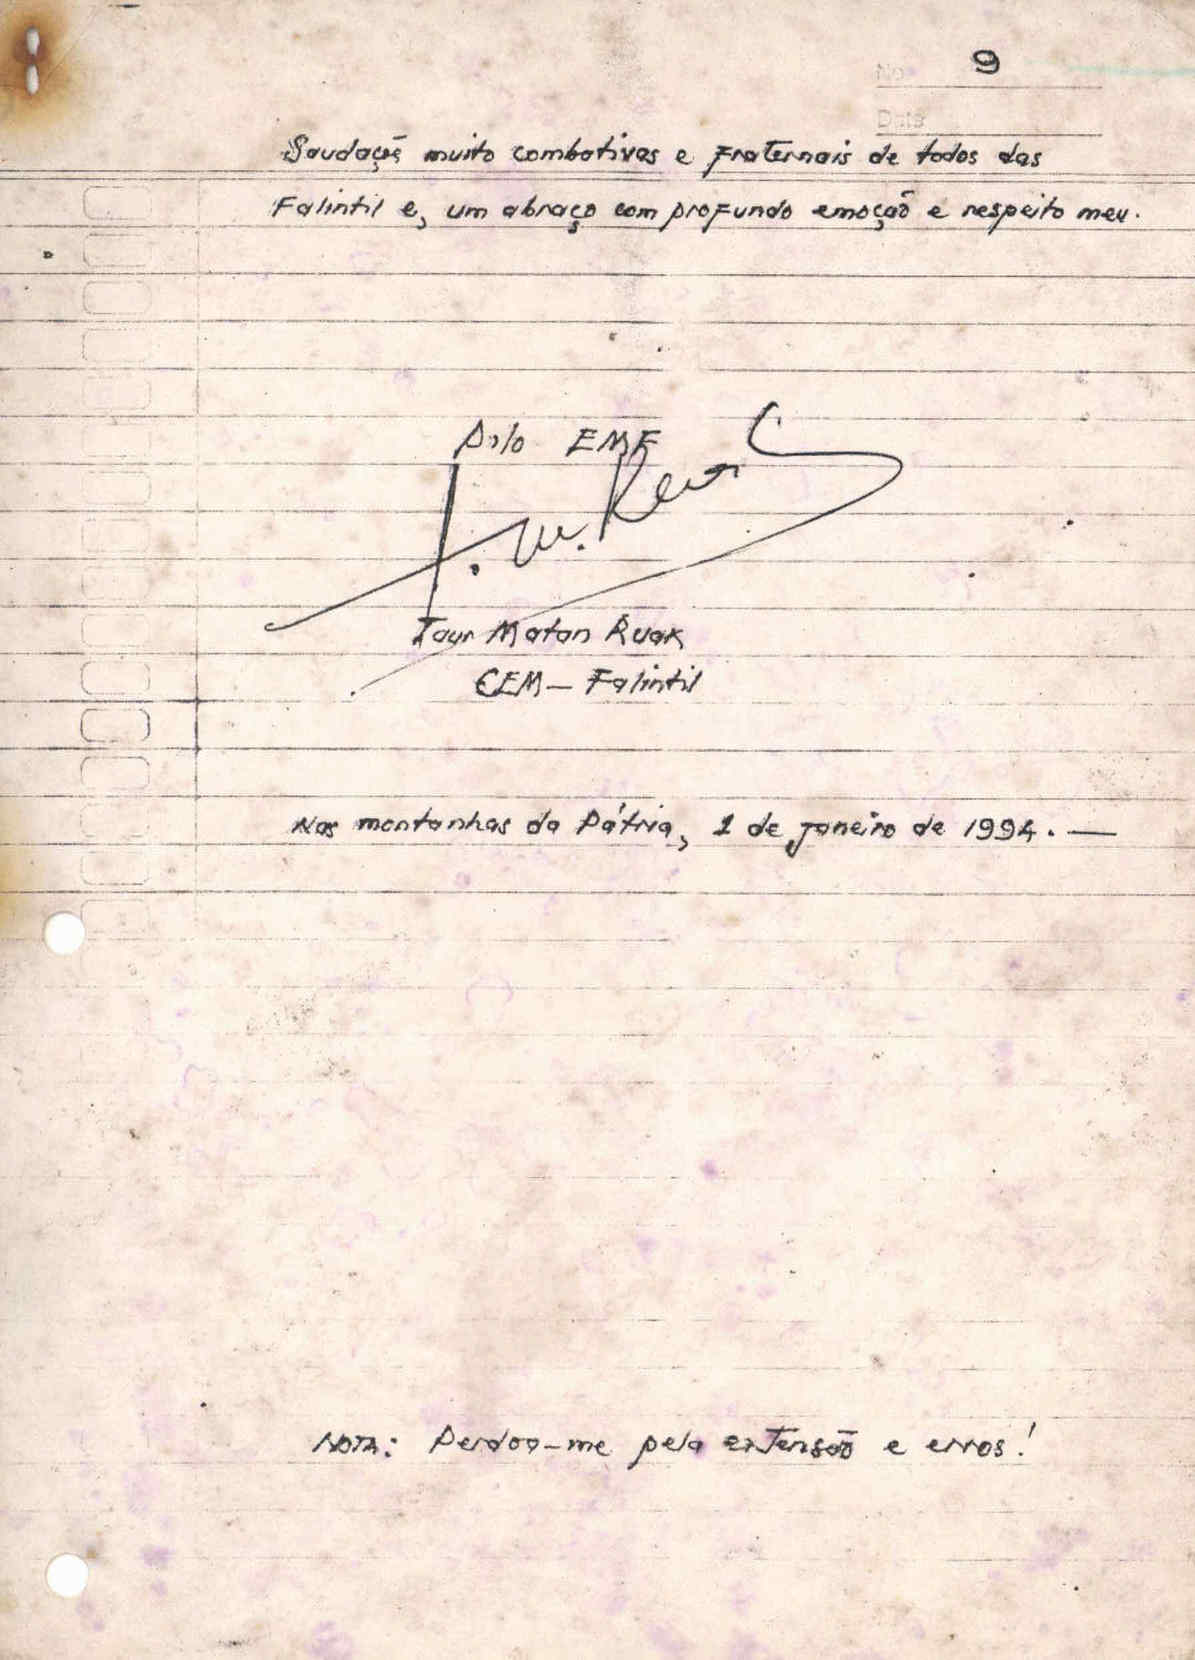 No 9
Date
Saudaçõe muito combativas e fraternais de todos das
Falintil e, um abraço com profundo emoção e respeito meu.
Pelo EMF
T. M. Ruak
Taur Matan Ruak
CEM - Falintil
Nas montanhas da Pátria, 1 de janeiro de 1994. —
NOTA: Perdoa-me pela extensão e erros!